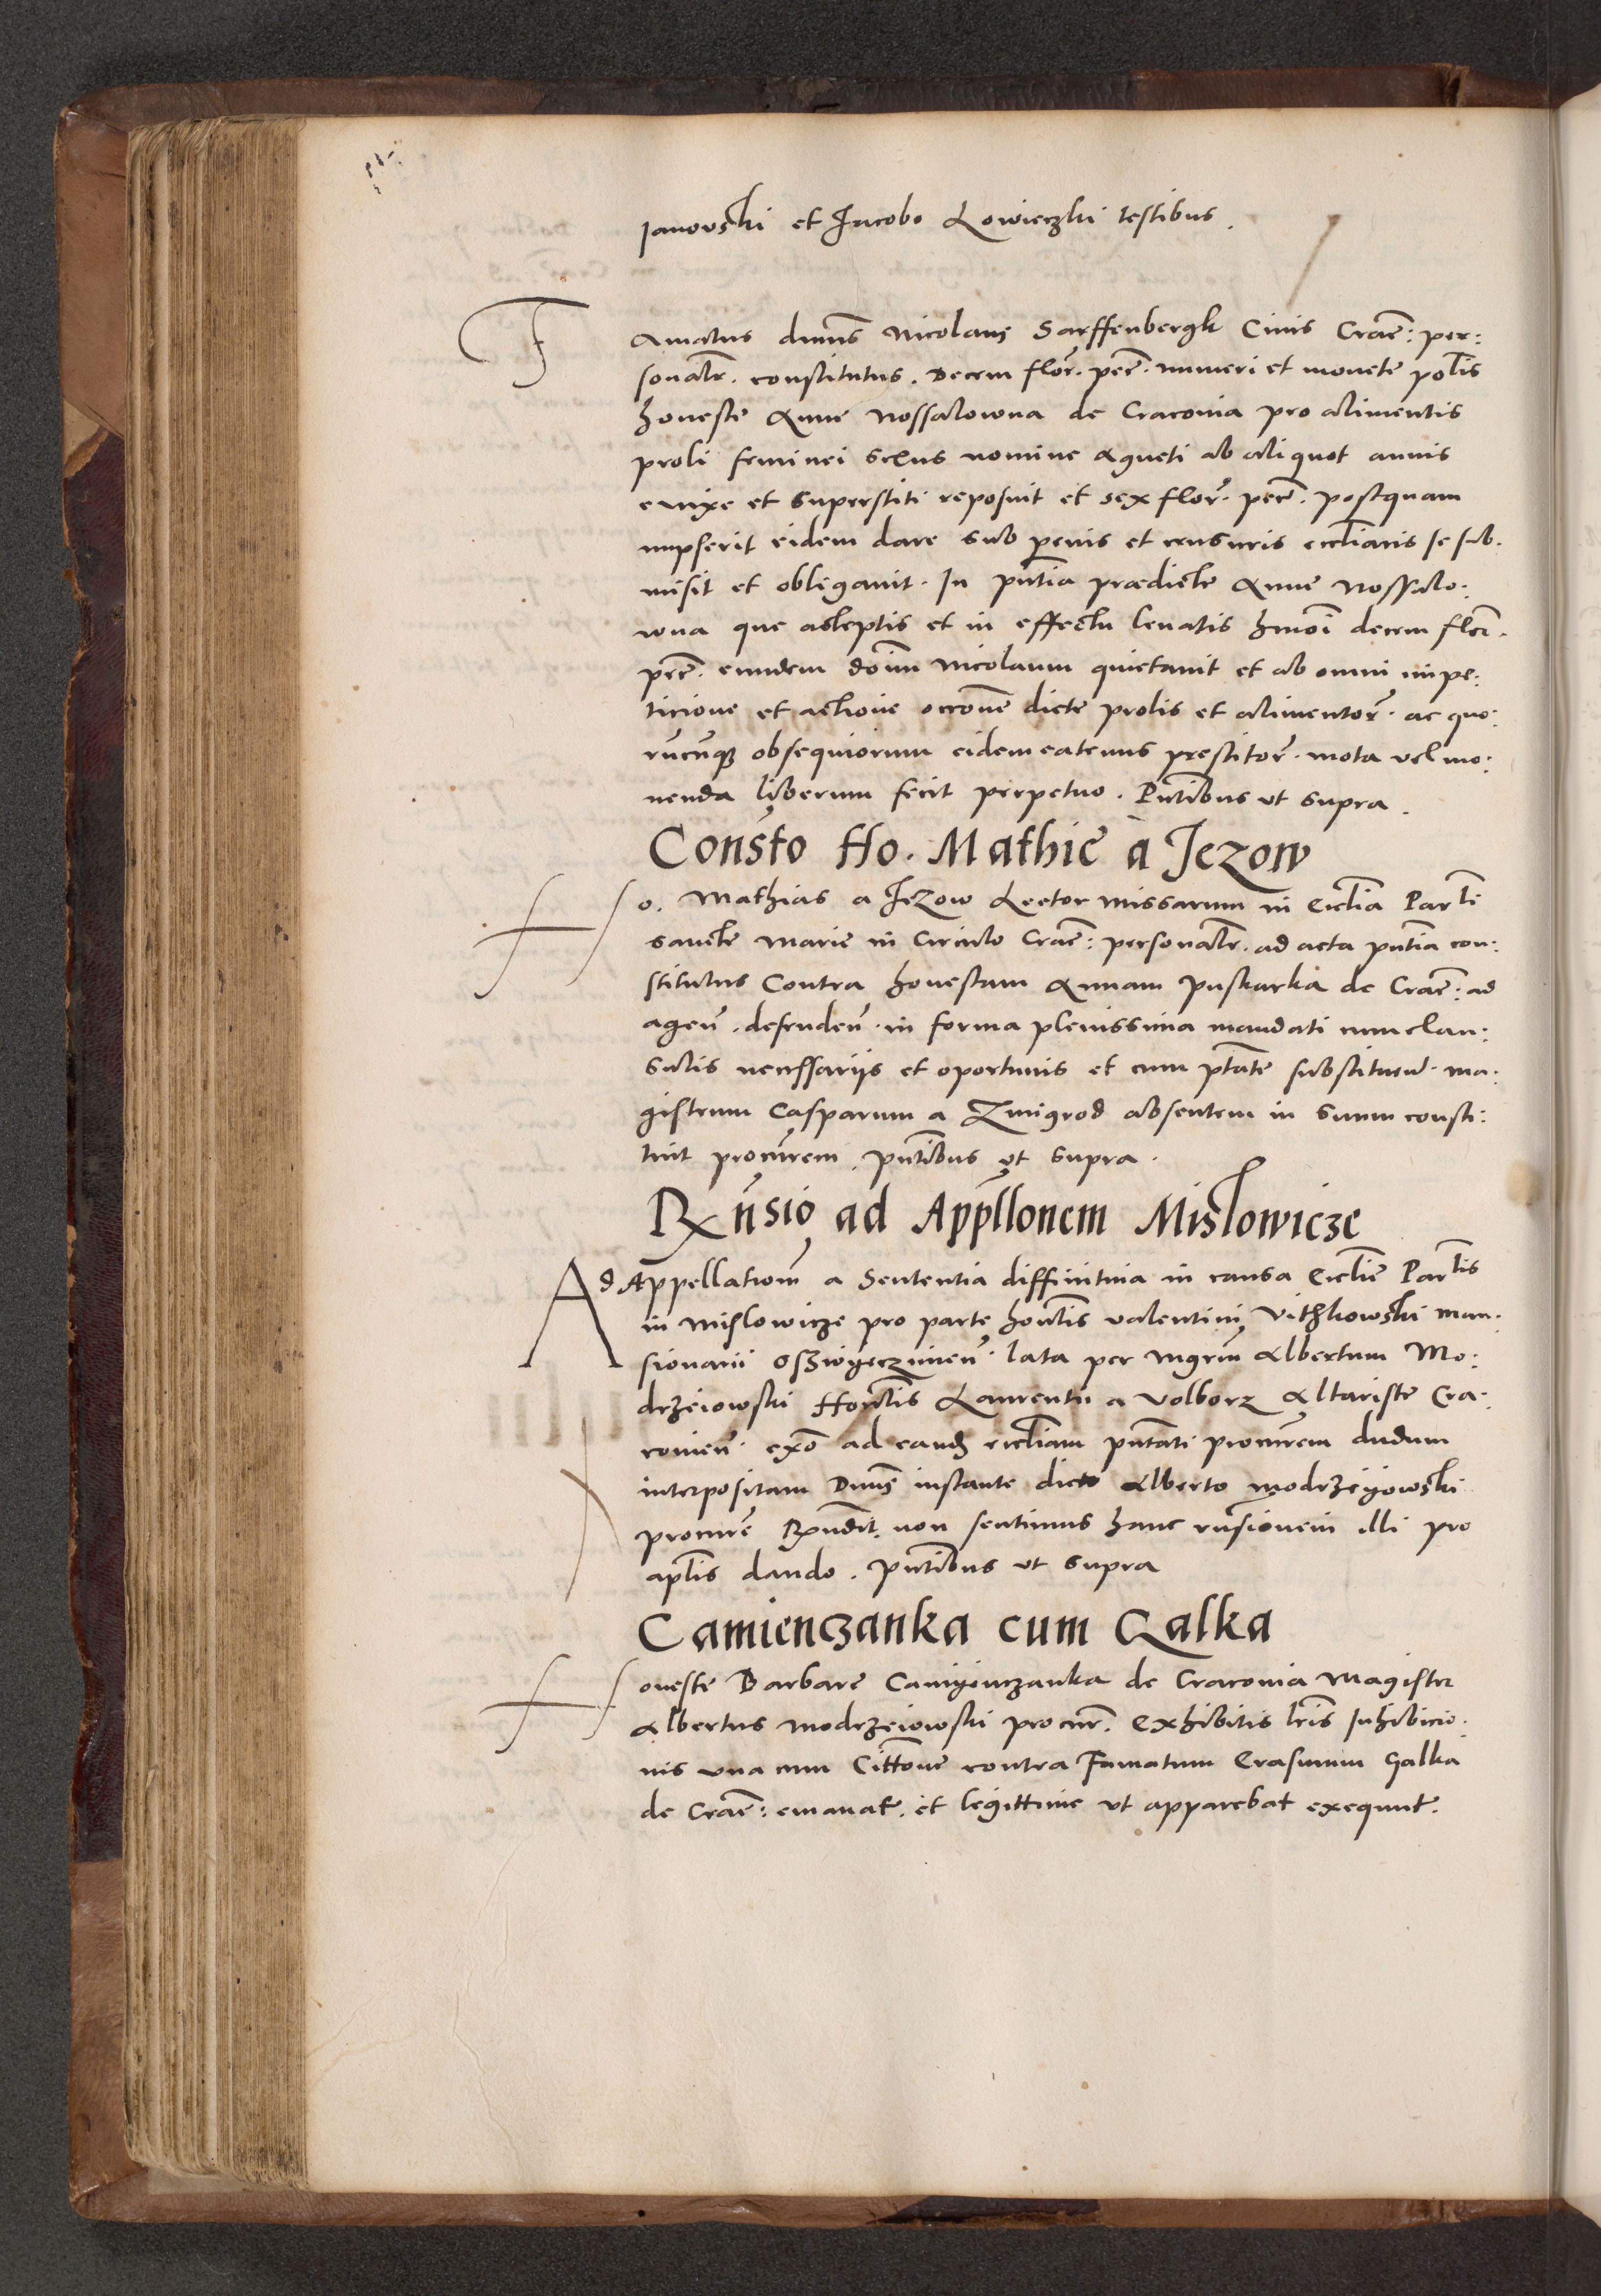 Janovski et Jacobo Lowieczki testibus.
Famatus dnus Nicolaus Sarffenbergk Civis Crace: per:
sonaltr. constitutus. Decem flor. pec. numeri et monete polis
honeste Anne Nossalowna de Cracovia pro alimentis
proli feminei sexus nomine Agneti ab aliquot annis
enixe et superstiti reposuit et sex flor. pec. postquam
nupserit eidem dare sub penis et censuris eccliacis se sub.
misit et obligavit. In pntia praedicte Anne Nossalo:
wna que acceptis et in effectu levatis hmoi decem flor.
pec. eundem doim Nicolaum quietavit et ab omni impe:
ticione et actione occone dicte prolis et alimentor. ac quo:
rucunq obsequiorum eidem eatenus prestitor. mota vel mo:
venda liberum fecit perpetuo. Pntibus ut supra.
Consto Ho. Mathie à Jezow
Ho. Mathias a Jezow Lector missarum in Ecclia Parli
sancte Marie in Circulo Crace: personaltr. ad acta pntia con:
stitutus Contra honestam Annam Puskarka de Crace: ad
agen. defenden. in forma plenissima mandati cum clau:
sulis necessariis et oportunis et cum ptate substituend. ma:
gistrum Casparum a Zmigrod absentem in suum consti:
tuit procurem. pntibus ut supra.
Rxnsio ad Appllonem Mislowicze
Ad Appellationem a Sententia diffinitiva in causa Ecclie Parlis
in Mislowicze pro parte honlis Valentini Vithkowski man.
sionarii Oszwyeczimen. lata per Mgrm Albertum Mo:
drzeiowski Honlis Laurentii a Volborz Altariste Cra.
covien. exo ad eand ecclliam pntati procurem dudum
interpositam Dnus instante dicto Alberto Modrzeyowski
procure Rxndit. non sentimus hanc rnsionem illi pro
aplis dando. Pntibus ut supra
Camienczanka cum Galka
Honeste Barbare Camyenczanka de Cracovia Magister
Albertus Modrzeiowski procur. Exhibitis lris Inhibicio.
nis una cum Cittone contra Famatum Erasmum Galka
de Crace: emanat. et legittime ut apparebat exequut.